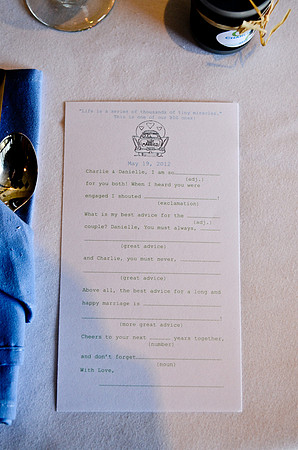 "Life is a series of thousands of tiny miracles."
This is one of our BIG ones!
May 19, 2012
Charlie & Danielle, I am so
(adj.)
for you both! When I heard you were
engaged I shouted !
(exclamation)
What is my best advice for the
(adj.)
couple? Danielle, You must always,
(great advice)
and Charlie, you must never,
(great advice)
Above all, the best advice for a long and
happy marriage is
(more great advice)
Cheers to your next years together,
(number)
and don't forget
(noun)
With Love,